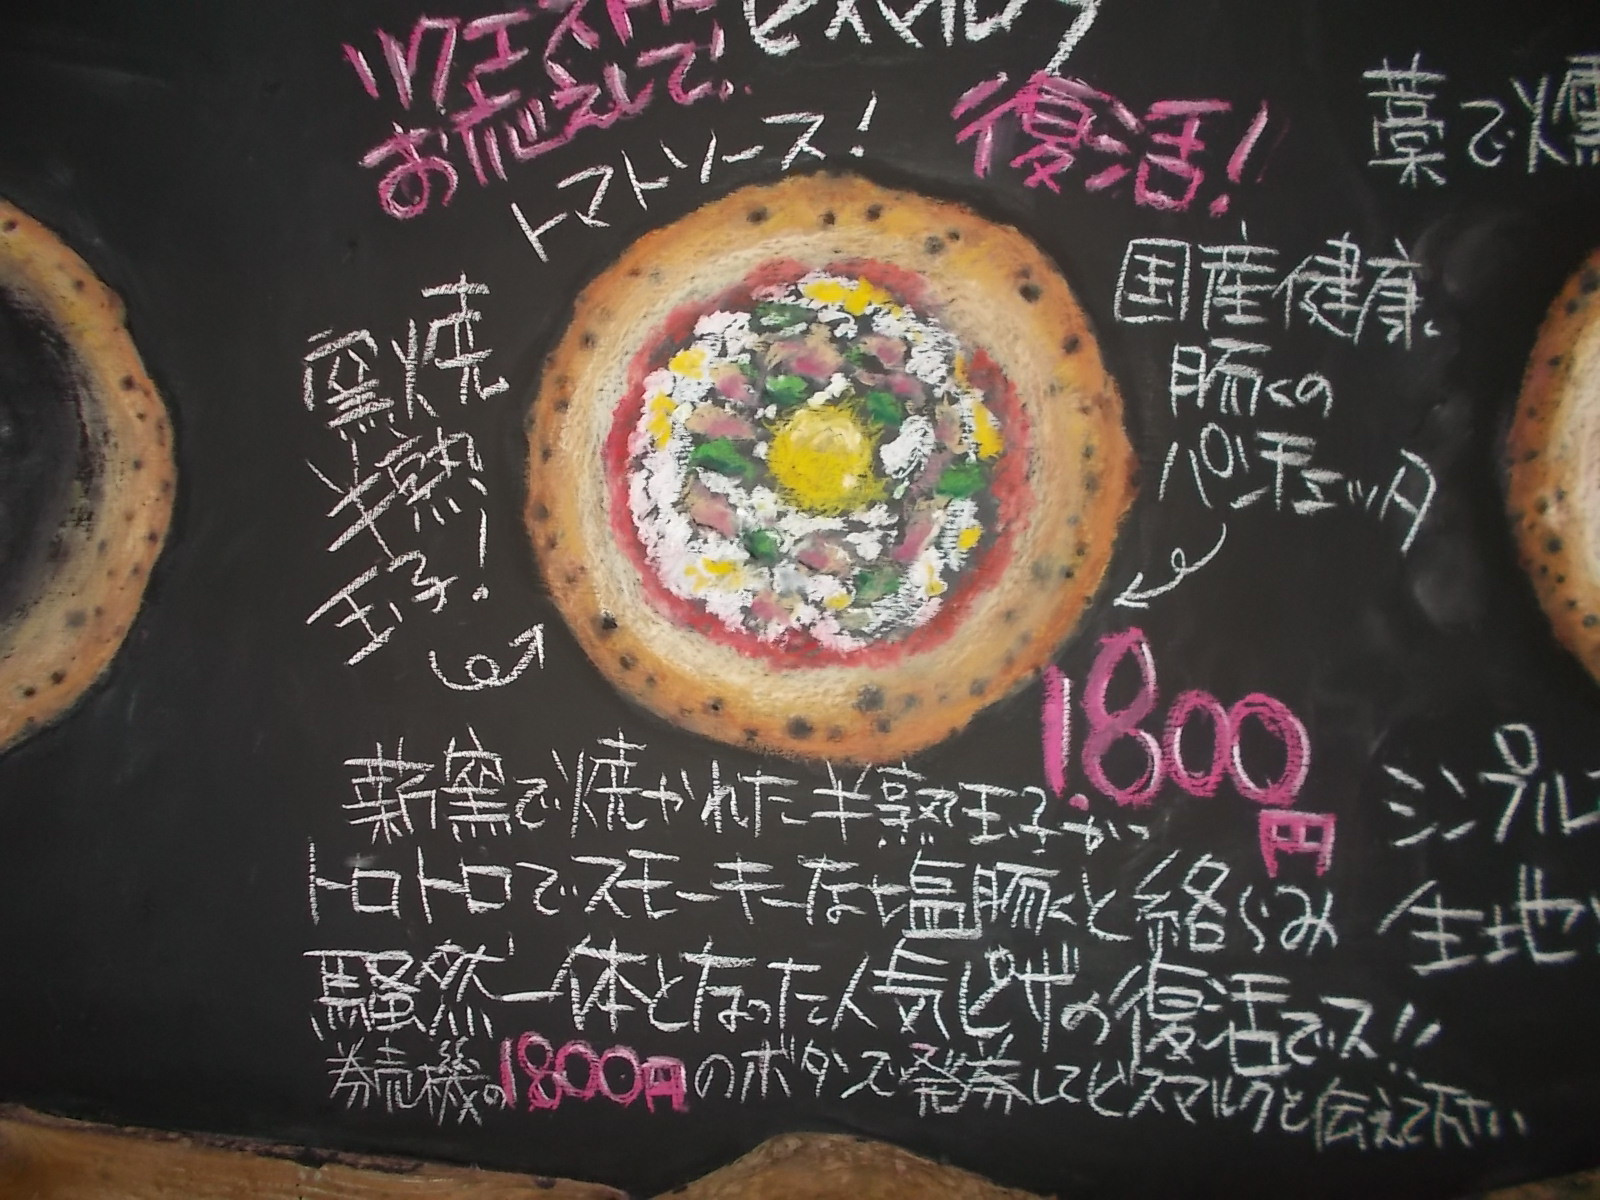 リクエストに
お応えして!
ビスマルク
復活!
トマトソース!
藁で燻
国産健康
豚くの
パンチェッタ
窯焼
半熟
玉子!
1.800
円
薪窯で焼かれた半熟玉子がっ
トロトロでスモーキーな塩豚くと絡らみ
騒然一体となった人気ピザの復活でス!!
券売機の1800円のボタンで発券してビスマルクと伝えて下さい
シンプル
生地